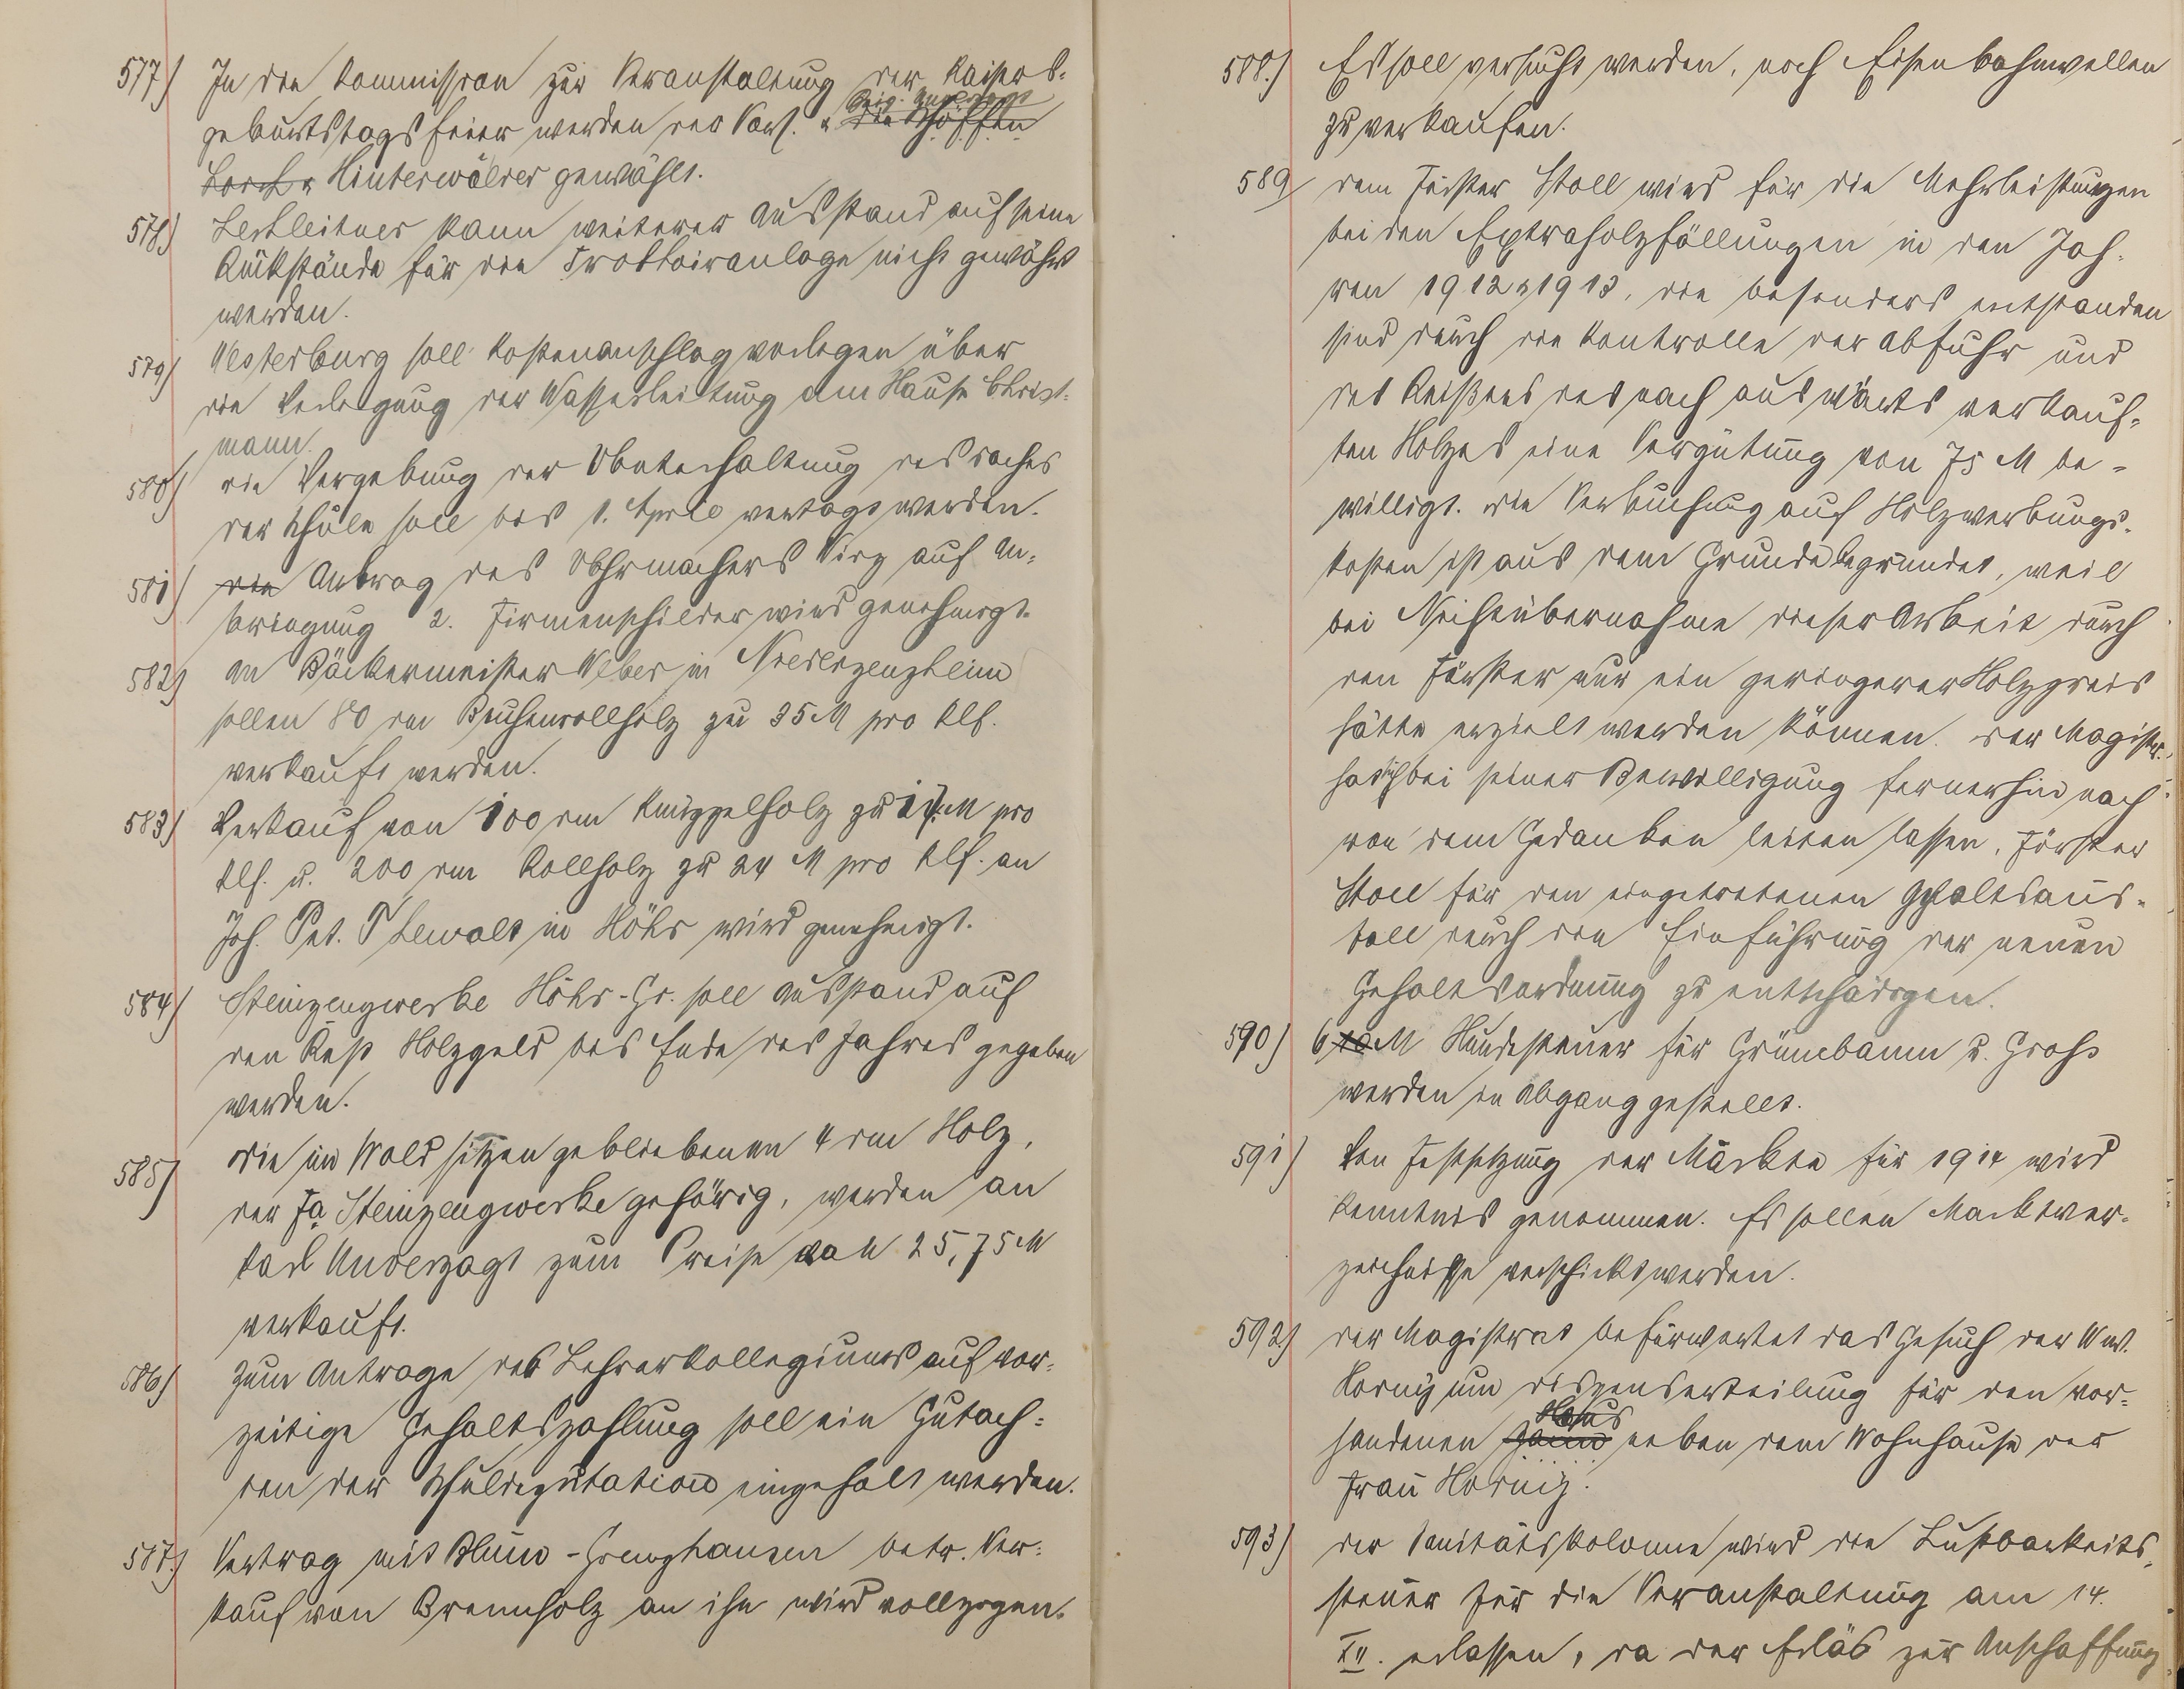 577) In die Kommission zur Veranstaltung der Kaisers-
geburtstagsfeier werden der Vors. u. Beig. ~~die Schöffen~~
~~Lorch u.~~ Hinterwälder gewählt.
578) Lestleitner kann weiterer Ausstand auf seine
Rückstände für die Trottoiranlage nicht gewährt
werden.
579) Westerburg soll Kostenanschlag vorlegen über
die Verlegung der Wasserleitung am Hause Christ-
mann.
580) die Vergebung der Unterhaltung des Daches
der Schule soll bis 1. April vertagt werden.
581) ~~die~~ Antrag des Uhrmachers Kirz auf An-
bringung 2. Firmenschilder wird genehmigt.
582) An Bäckermeister Weber in Niederzeuzheim
sollen 80 rm Buchenrollholz zu 35 M pro Klf.
verkauft werden.
583) Verkauf von 100 rm Knüppelholz zu M pro
Klf. u. 200 rm Rollholz zu 24 M pro Klf. an
Joh. Pet. Lewalt in Höhr wird genehmigt.
584) Steinzeugwerke Höhr-Gr. soll Ausstand auf
den Rest Holzgeld bis Ende des Jahres gegeben
werden.
585) Die im Wald sitzen gebliebenen 4 rm Holz,
der Fa. Steinzeugwerke gehörig, werden an
Karl Unverzagt zum Preise von 25,75 M
verkauft.
586) Zum Antrage des Lehrerkollegiums auf vor-
zeitige Gehaltszahlung soll ein Gutach-
ten der Schuldeputation eingeholt werden.
587.) Vertrag mit Blum-Grenzhausen betr. Ver-
kauf von Brennholz an ihn wird vollzogen.
588.) Es soll versucht werden, noch Eisenbahnwellen
zu verkaufen.
589 dem Förster Stoll wird für die Mehrleistungen
bei den Extraholzfällungen in den Jah-
ren 1912 u. 1913, die besonders entstanden
sind durch die Kontrolle der Abfuhr und
des Reißens des nach auswärts verkauf-
ten Holzes eine Vergütung von 75 M be-
willigt. Die Verbuchung auf Holzwerbungs-
kosten ist aus dem Grunde begründet, weil
bei Nichtübernahme dieser Arbeit durch
den Förster nur ein geringerer Holzpreis
hätte erzielt werden können. Der Magistr.
hat sich bei seiner Bewilligung fernerhin noch
von dem Gedanken leiten lassen, Förster
Stoll für den eingetretenen Gehaltsaus-
fall durch die Einführung der neuen
Gehaltsordnung zu entschädigen.
590) 6 ~~10~~ M Hundesteuer für Grünebaum u. Groß
werden in Abgang gestellt.
591) Von Festsetzung der Märkte für 1914 wird
Kenntnis genommen. Es sollen Marktver-
zeichnisse verschickt werden.
592) der Magistrat befürwortet das Gesuch der Ww.
Hornig um Dispenserteilung für den vor-
handenen ~~Zaun~~ neben dem Wohnhause der
Frau Hornig.
593) der Sanitätskolonne wird die Lustbarkeits-
steuer für die Veranstaltung am 14.
XII. erlassen, da der Erlös zur Anschaffung